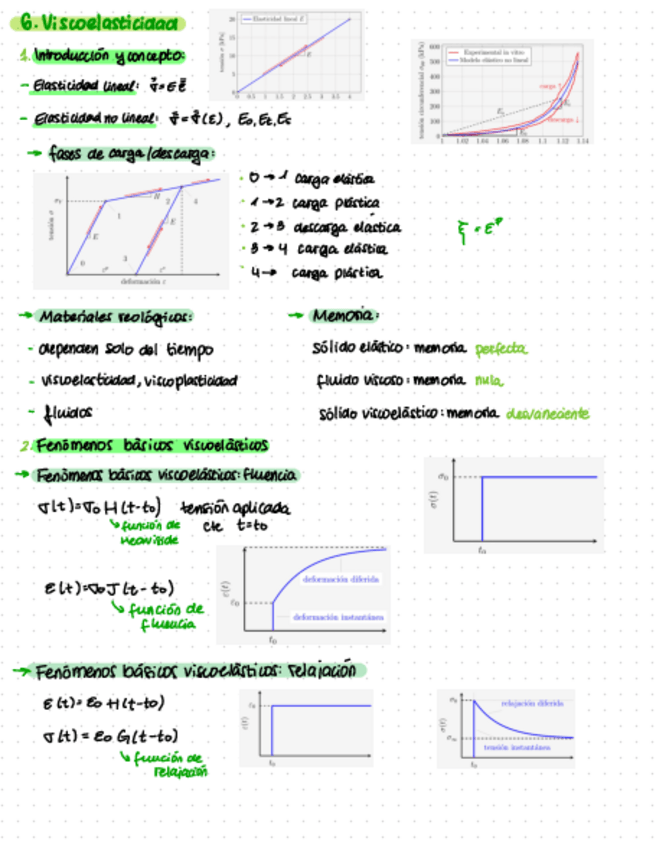 6. Viscoelasticidad
1. Introducción y concepto:
- Elasticidad lineal: σ̄ = E ε̄
- Elasticidad no lineal: σ̄ = σ̄(ε), E₀, Eₜ, Eₛ
Elasticidad lineal E
tensión σ [kPa]
20
15
10
5
0
0 0.5 1 1.5 2 2.5 3 3.5 4
E
Experimental in vitro
Modelo elástico no lineal
600
500
400
300
200
100
0
1 1.02 1.04 1.06 1.08 1.1 1.12 1.14
carga ↑
descarga ↓
→ fases de carga/descarga:
tensión σ
deformación ε
0 1 2 3 4
E
H
E
· 0 → 1 carga elástica
· 1 → 2 carga plástica
· 2 → 3 descarga elástica
· 3 → 4 carga elástica
· 4 → carga plástica
→ Materiales reológicos:
- dependen solo del tiempo
- viscoelasticidad, viscoplasticidad
- fluidos
→ Memoria:
sólido elástico: memoria perfecta
fluido viscoso: memoria nula
sólido viscoelástico: memoria desvaneciente
2. Fenómenos básicos viscoelásticos
→ Fenómenos básicos viscoelásticos: fluencia
σ(t) = σ₀ H(t-t₀) tensión aplicada
cte t=t₀
función de
Heaviside
σ(t)
σ₀
t₀
ε(t) = σ₀ J(t-t₀)
función de
fluencia
ε(t)
ε₀
deformación diferida
deformación instantánea
t₀
→ Fenómenos básicos viscoelásticos: relajación
ε(t) = ε₀ H(t-t₀)
σ(t) = ε₀ G(t-t₀)
función de
relajación
ε(t)
ε₀
t₀
σ(t)
σ₀
σ∞
relajación diferida
tensión instantánea
t₀